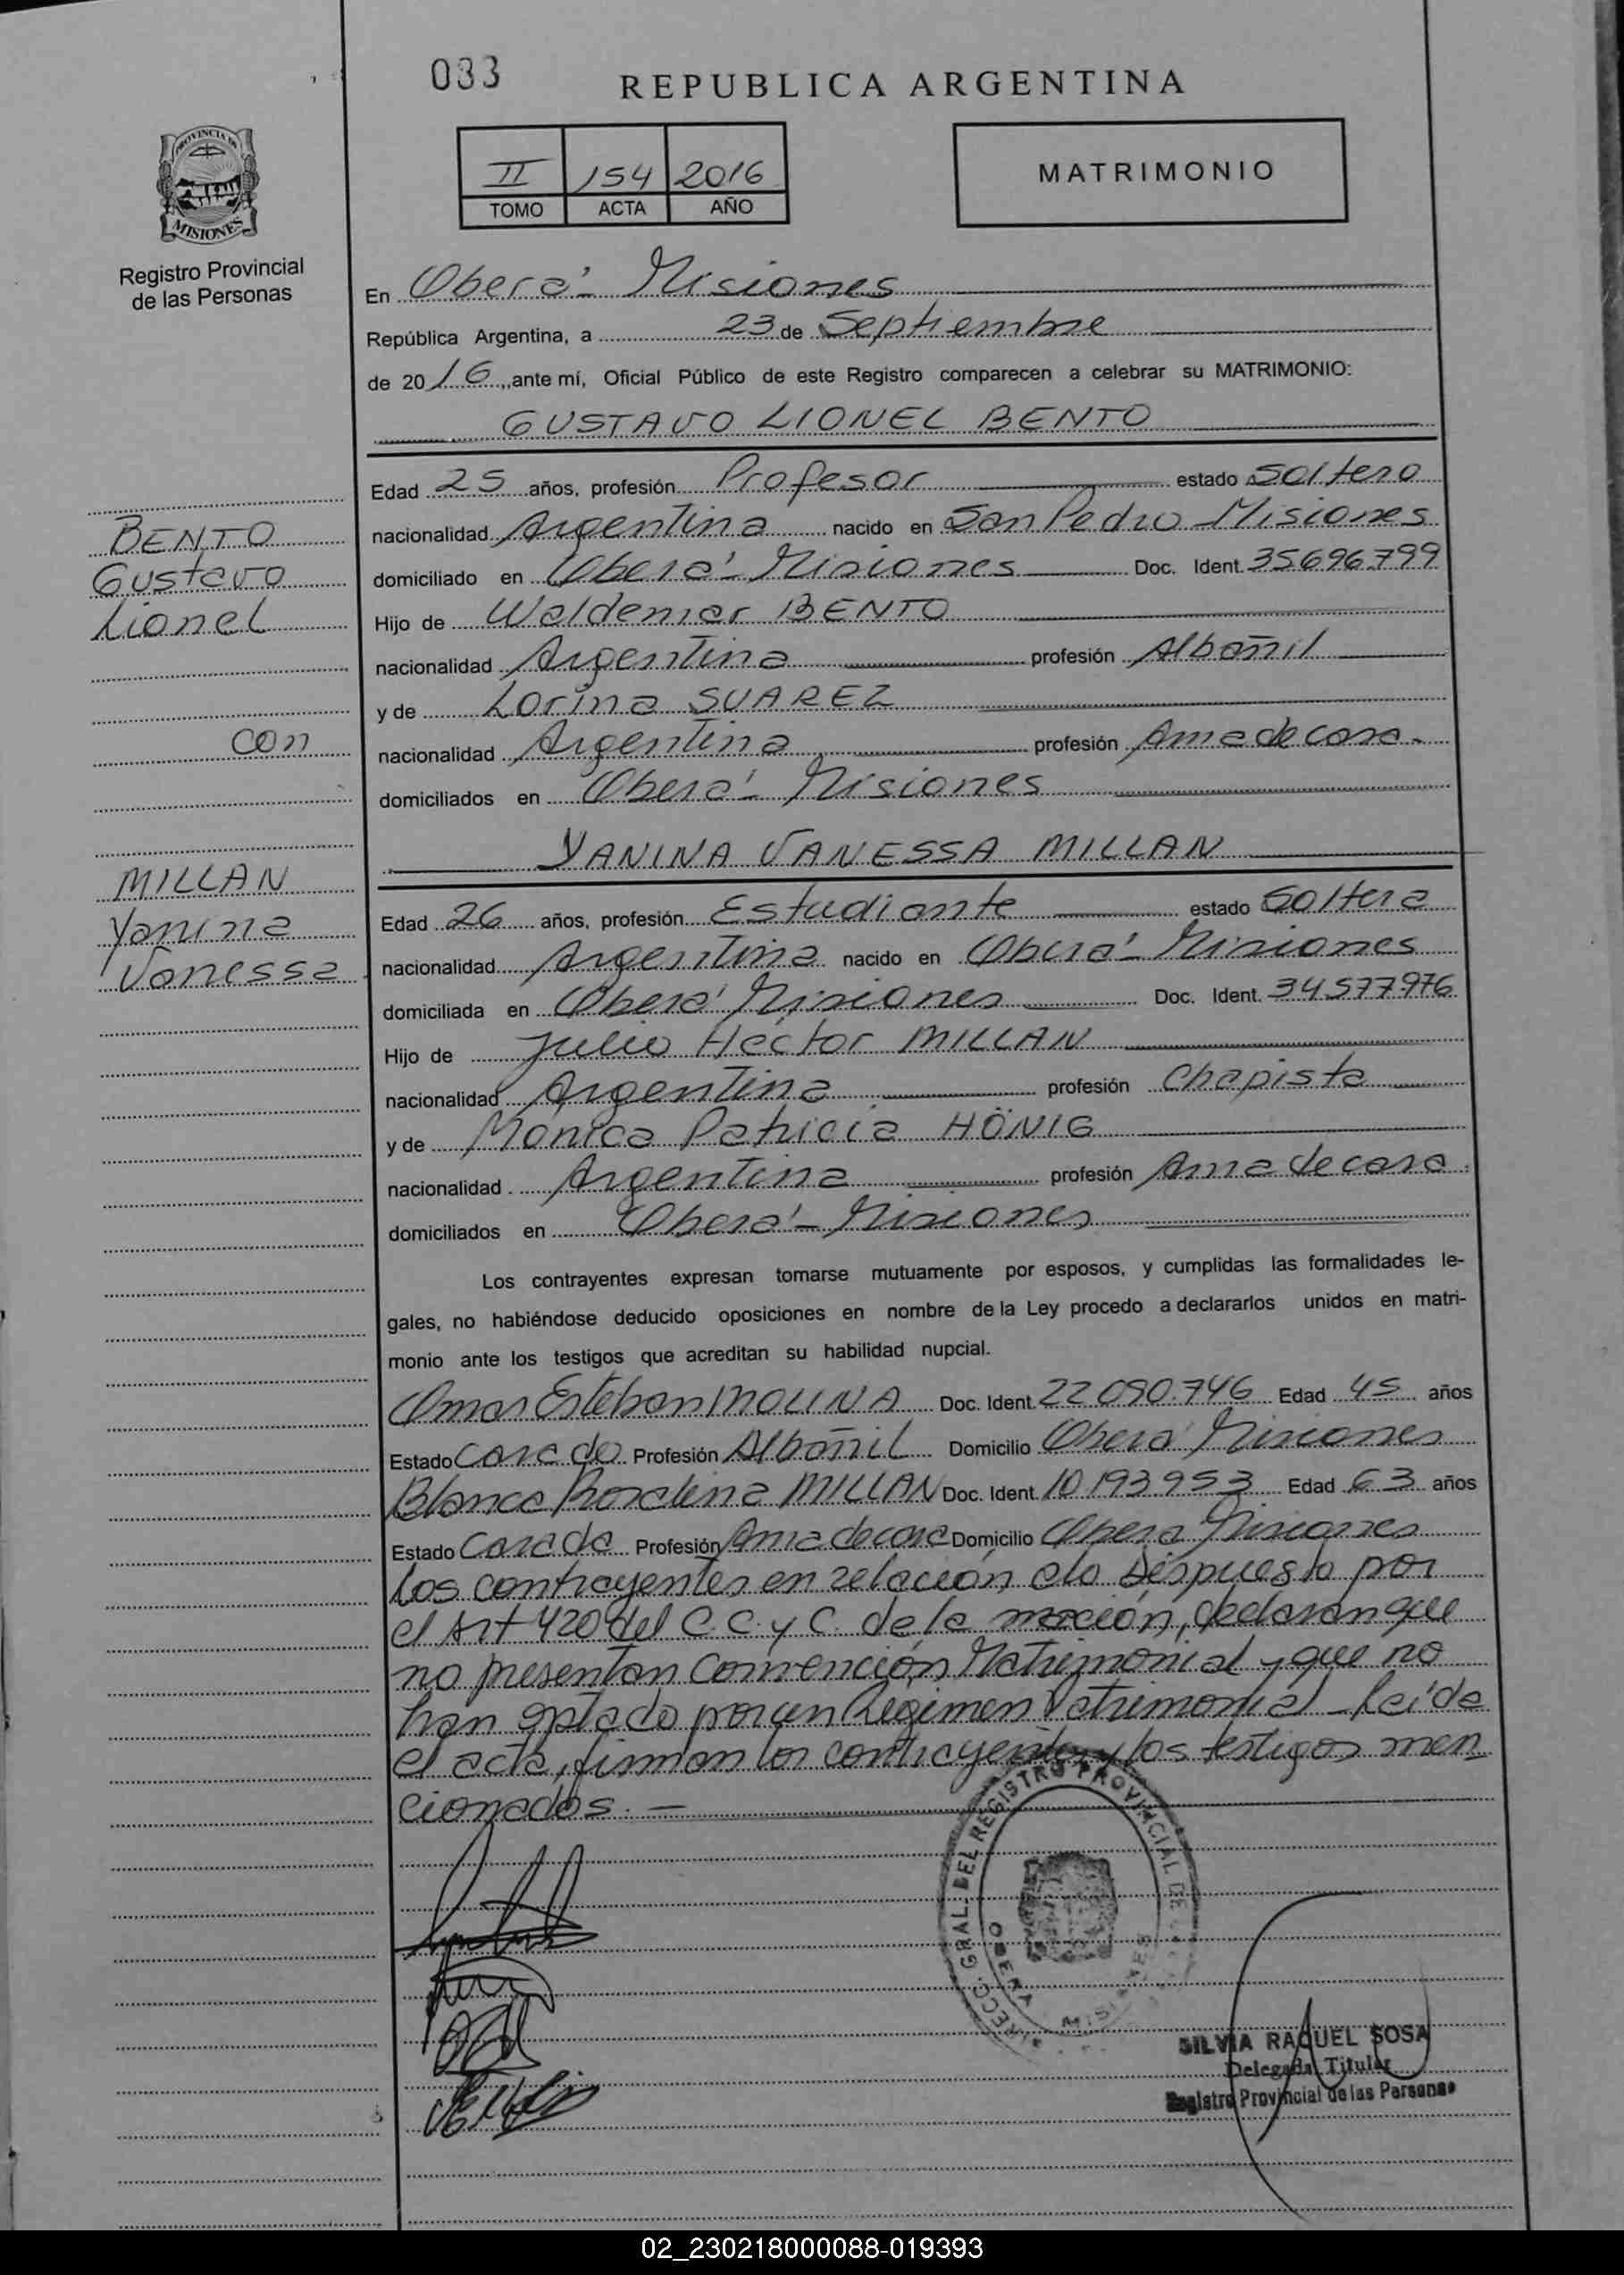 033
REPUBLICA ARGENTINA
II 154 2016
TOMO ACTA AÑO
MATRIMONIO
PROVINCIA DE
MISIONES
Registro Provincial
de las Personas
En Oberá - Misiones
República Argentina, a 23 de Septiembre
de 2016, ante mí, Oficial Público de este Registro comparecen a celebrar su MATRIMONIO:
GUSTAVO LIONEL BENTO
Edad 25 años, profesión Profesor estado Soltero
nacionalidad Argentina nacido en San Pedro Misiones
domiciliado en Oberá - Misiones Doc. Ident. 35.696.799
Hijo de Waldemar BENTO
nacionalidad Argentina profesión Albañil
y de Lorina SUAREZ
nacionalidad Argentina profesión Ama de casa.
domiciliados en Oberá - Misiones
BENTO
Gustavo
Lionel
con
MILLAN
Yanina
Vanessa
YANINA VANESSA MILLAN
Edad 26 años, profesión Estudiante estado Soltera
nacionalidad Argentina nacido en Oberá - Misiones
domiciliada en Oberá Misiones Doc. Ident. 34.577.976
Hijo de Julio Héctor MILLAN
nacionalidad Argentina profesión Chapista
y de Mónica Patricia HÖNIG
nacionalidad Argentina profesión Ama de casa
domiciliados en Oberá - Misiones
Los contrayentes expresan tomarse mutuamente por esposos, y cumplidas las formalidades le-
gales, no habiéndose deducido oposiciones en nombre de la Ley procedo a declararlos unidos en matri-
monio ante los testigos que acreditan su habilidad nupcial.
Omar Esteban MOLINA Doc. Ident. 22.090.746 Edad 45 años
Estado Casado Profesión Albañil Domicilio Oberá Misiones
Blanca MILLAN Doc. Ident. 10.193.953 Edad 63 años
Estado Casada Profesión Ama de casa Domicilio Oberá Misiones
Los contrayentes en relación a lo Dispuesto por
el Art 420 del C.C. y C. de la nación, declaran que
no presentan Convención Matrimonial y que no
han optado por un Regimen Patrimonial - Leída
el acta, firman los contrayentes y los testigos men
cionados. -
DIRECC. GRAL. DEL REGISTRO PROVINCIAL DE
OBERA MISIONES
SILVIA RAQUEL SOSA
Delegada Titular
Registro Provincial de las Personas
02_230218000088-019393